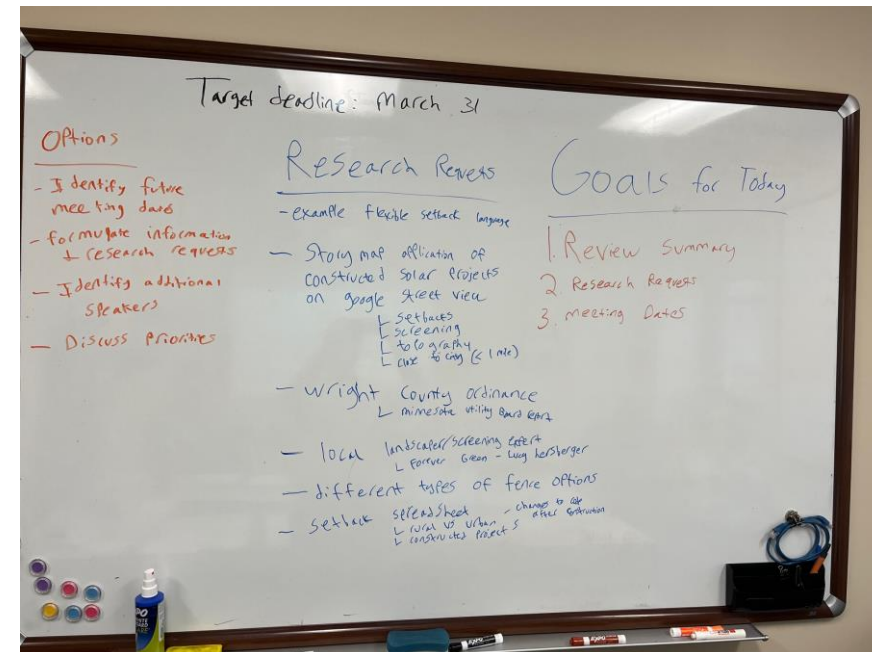 Target deadline: March 31
Options
- Identify future
meeting dates
- formulate information
+ research requests
- Identify additional
speakers
- Discuss Priorities
Research Requests
- example flexible setback language
- Story map application of
constructed solar projects
on google street view
└ setbacks
└ screening
└ topography
└ close to city (< 1 mile)
- Wright County ordinance
└ minnesota utility Board report
- local landscaper/screening expert
└ Forever Green - Lucy Hershberger
- different types of fence options
- setback spreadsheet - changes to code
after construction
└ rural vs urban
└ constructed projects
Goals for Today
1. Review Summary
2. Research Requests
3. Meeting Dates
EXPO